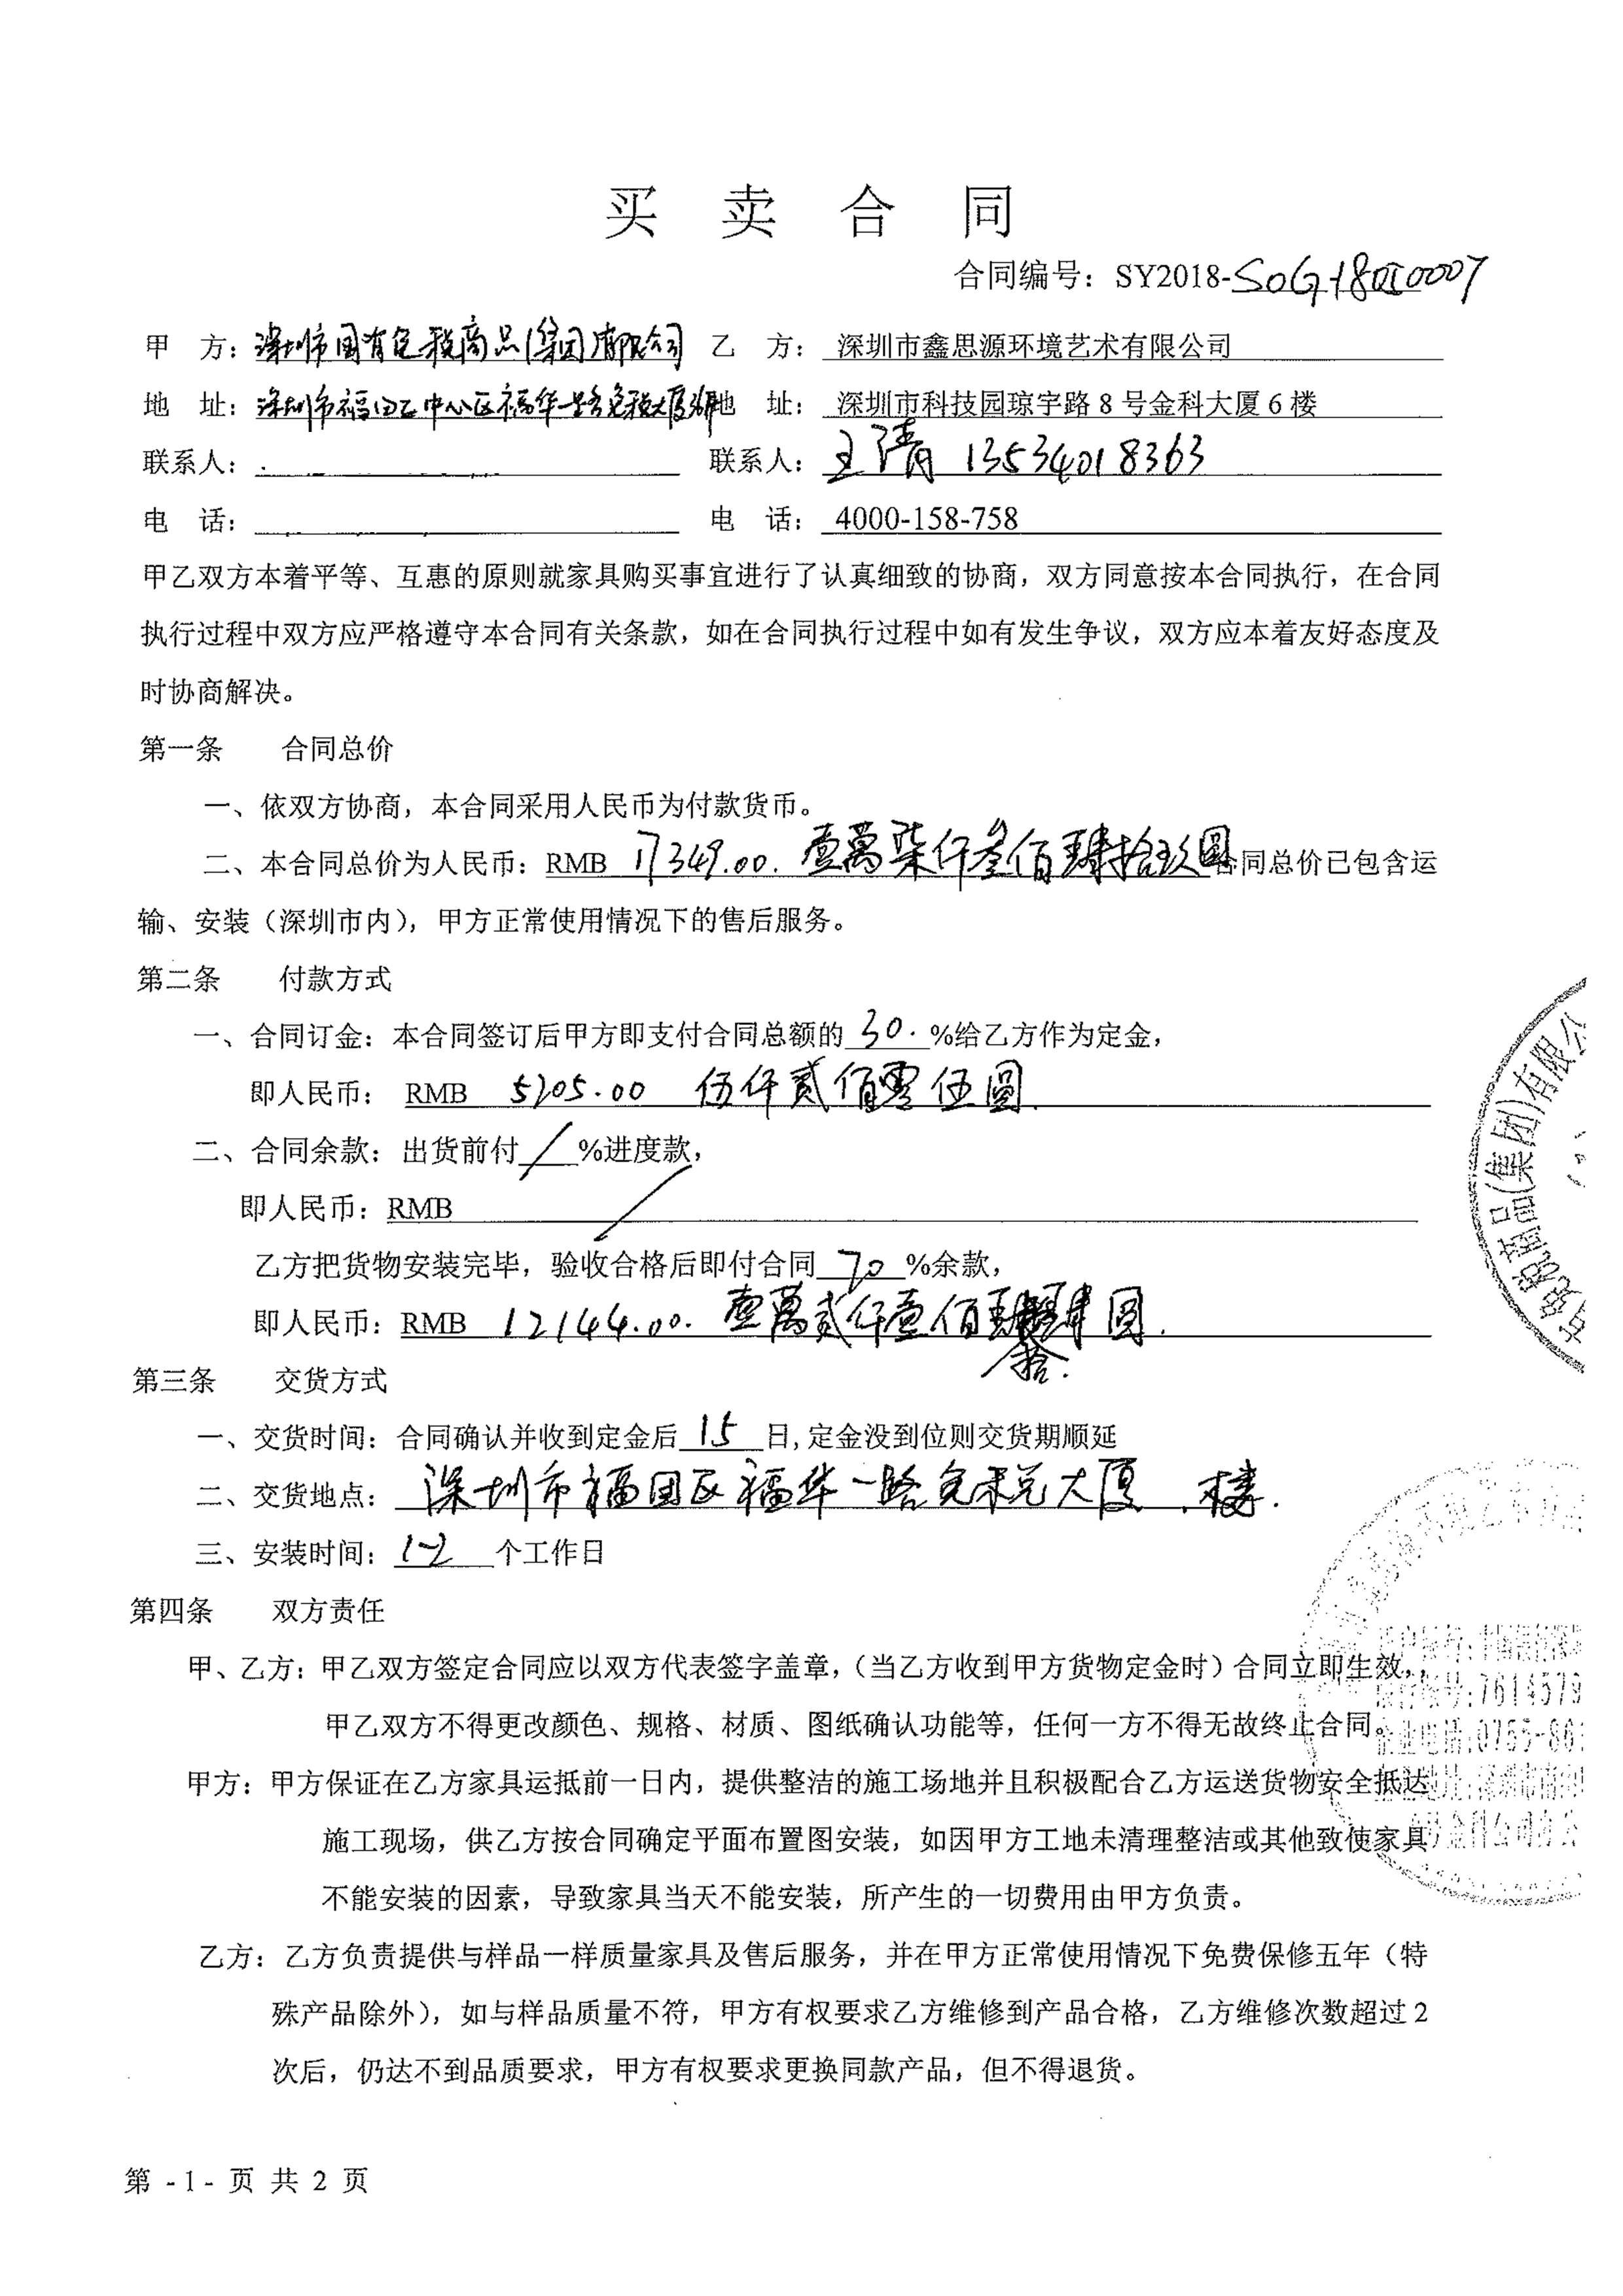 买 卖 合 同
合同编号：SY2018-SOG-180I0007
甲 方：深圳市国有免税商品(集团)有限公司 乙 方：深圳市鑫思源环境艺术有限公司
地 址：深圳市福田区中心区福华一路免税大厦 地 址：深圳市科技园琼宇路 8 号金科大厦 6 楼
联系人： 联系人：王清 13534018363
电 话： 电 话：4000-158-758
甲乙双方本着平等、互惠的原则就家具购买事宜进行了认真细致的协商，双方同意按本合同执行，在合同
执行过程中双方应严格遵守本合同有关条款，如在合同执行过程中如有发生争议，双方应本着友好态度及
时协商解决。
第一条 合同总价
一、依双方协商，本合同采用人民币为付款货币。
二、本合同总价为人民币：RMB 17349.00. 壹萬柒仟叁佰肆拾玖圆 合同总价已包含运
输、安装（深圳市内），甲方正常使用情况下的售后服务。
第二条 付款方式
一、合同订金：本合同签订后甲方即支付合同总额的 30. %给乙方作为定金，
即人民币： RMB 5205.00 伍仟贰佰零伍圆.
二、合同余款：出货前付 / %进度款，
即人民币：RMB /
乙方把货物安装完毕，验收合格后即付合同 70 %余款，
即人民币：RMB 12144.00. 壹萬贰仟壹佰肆拾肆圆.
第三条 交货方式
一、交货时间：合同确认并收到定金后 15 日,定金没到位则交货期顺延
二、交货地点：深圳市福田区福华一路免税大厦 楼.
三、安装时间：1-2 个工作日
第四条 双方责任
甲、乙方：甲乙双方签定合同应以双方代表签字盖章，（当乙方收到甲方货物定金时）合同立即生效，
甲乙双方不得更改颜色、规格、材质、图纸确认功能等，任何一方不得无故终止合同。
甲方：甲方保证在乙方家具运抵前一日内，提供整洁的施工场地并且积极配合乙方运送货物安全抵达
施工现场，供乙方按合同确定平面布置图安装，如因甲方工地未清理整洁或其他致使家具
不能安装的因素，导致家具当天不能安装，所产生的一切费用由甲方负责。
乙方：乙方负责提供与样品一样质量家具及售后服务，并在甲方正常使用情况下免费保修五年（特
殊产品除外），如与样品质量不符，甲方有权要求乙方维修到产品合格，乙方维修次数超过 2
次后，仍达不到品质要求，甲方有权要求更换同款产品，但不得退货。
免税商品(集团)有限公
环境艺术有限
账号:7614579
企业电话:0755-86
第 -1- 页 共 2 页